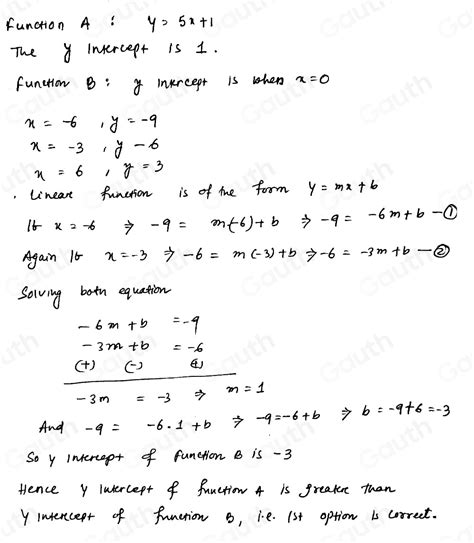 Function A : y = 5x+1
The y Intercept is 1.
Function B : y Intercept is when x=0
x = -6 , y = -9
x = -3 , y -6
x = 6 , y = 3
. Linear function is of the form y = mx + b
If x = -6 ⇒ -9 = m(-6) + b ⇒ -9 = -6m + b — ①
Again If x = -3 ⇒ -6 = m(-3) + b ⇒ -6 = -3m + b — ②
Solving both equation
-6m + b = -9
-3m + b = -6
(+) (-) (+)
-3m = -3 ⇒ m = 1
And -9 = -6.1 + b ⇒ -9 = -6 + b ⇒ b = -9+6 = -3
So y Intercept of function B is -3
Hence y Intercept of function A is greater than
y intercept of function B, i.e. 1st option is correct.